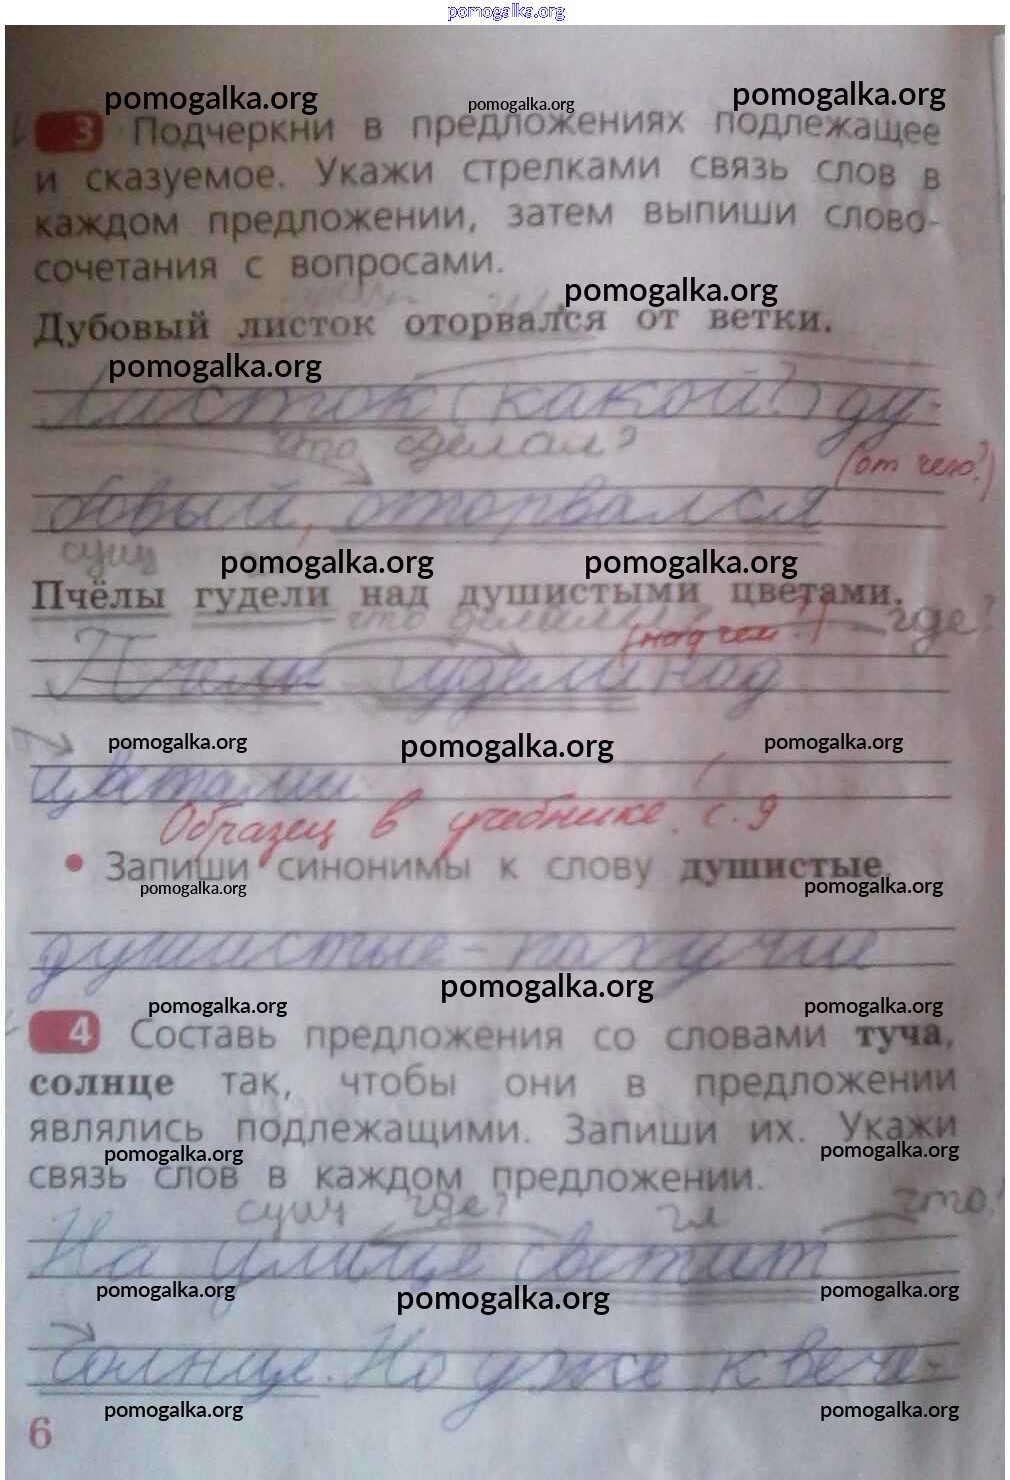 pomogalka.org
pomogalka.org pomogalka.org pomogalka.org
3 Подчеркни в предложениях подлежащее
и сказуемое. Укажи стрелками связь слов в
каждом предложении, затем выпиши слово-
сочетания с вопросами.
pomogalka.org
Дубовый листок оторвался от ветки.
pomogalka.org
Листок (какой?) ду-
что сделал?
(от чего?)
бовый, оторвался
сущ
pomogalka.org pomogalka.org
Пчёлы гудели над душистыми цветами.
что делали? где?
(над чем?)
Пчелы гудели над
pomogalka.org pomogalka.org pomogalka.org
цветами
Образец в учебнике. с. 9
• Запиши синонимы к слову душистые.
pomogalka.org pomogalka.org
душистые - пахучие
pomogalka.org pomogalka.org pomogalka.org
4 Составь предложения со словами туча,
солнце так, чтобы они в предложении
являлись подлежащими. Запиши их. Укажи
pomogalka.org pomogalka.org
связь слов в каждом предложении.
сущ где? гл что?
На улице светит
pomogalka.org pomogalka.org pomogalka.org
солнце. Но уже к вече-
pomogalka.org pomogalka.org
6